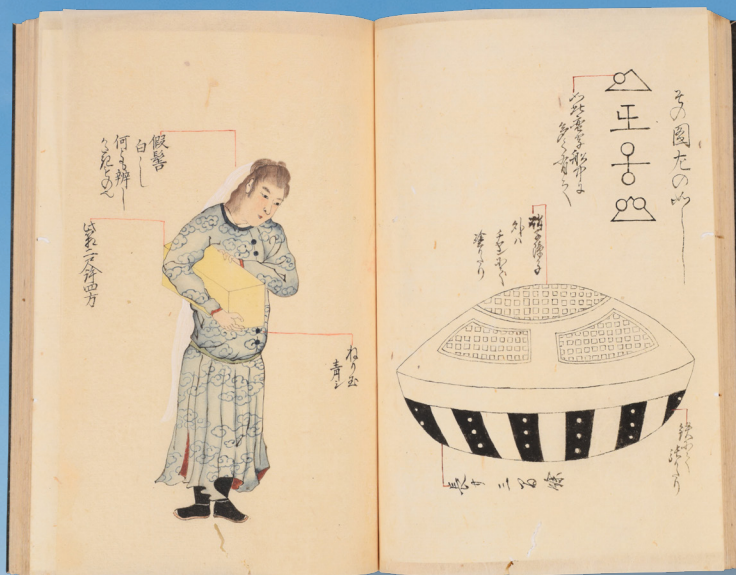 その圖左の如し
如此蛮字船中に
多く有之
硝子障子
外ハ
チヤンにて
塗りたり
鉄にて
張りたり
長サ三間
假髻
白し
何とも辨し
かたきもの也
此箱二尺四方
ねり玉
青し